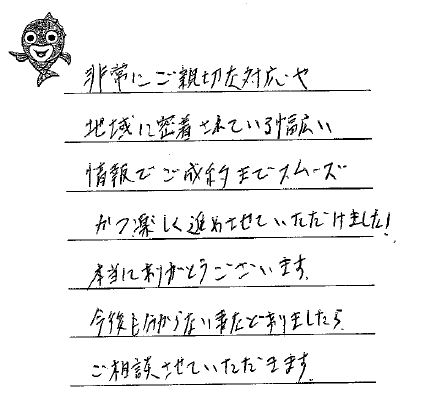 非常にご親切な対応や
地域に密着されている幅広い
情報でご成約までスムーズ
かつ楽しく進めさせていただけました！
本当にありがとうございます。
今後も分からない事などありましたら
ご相談させていただきます。